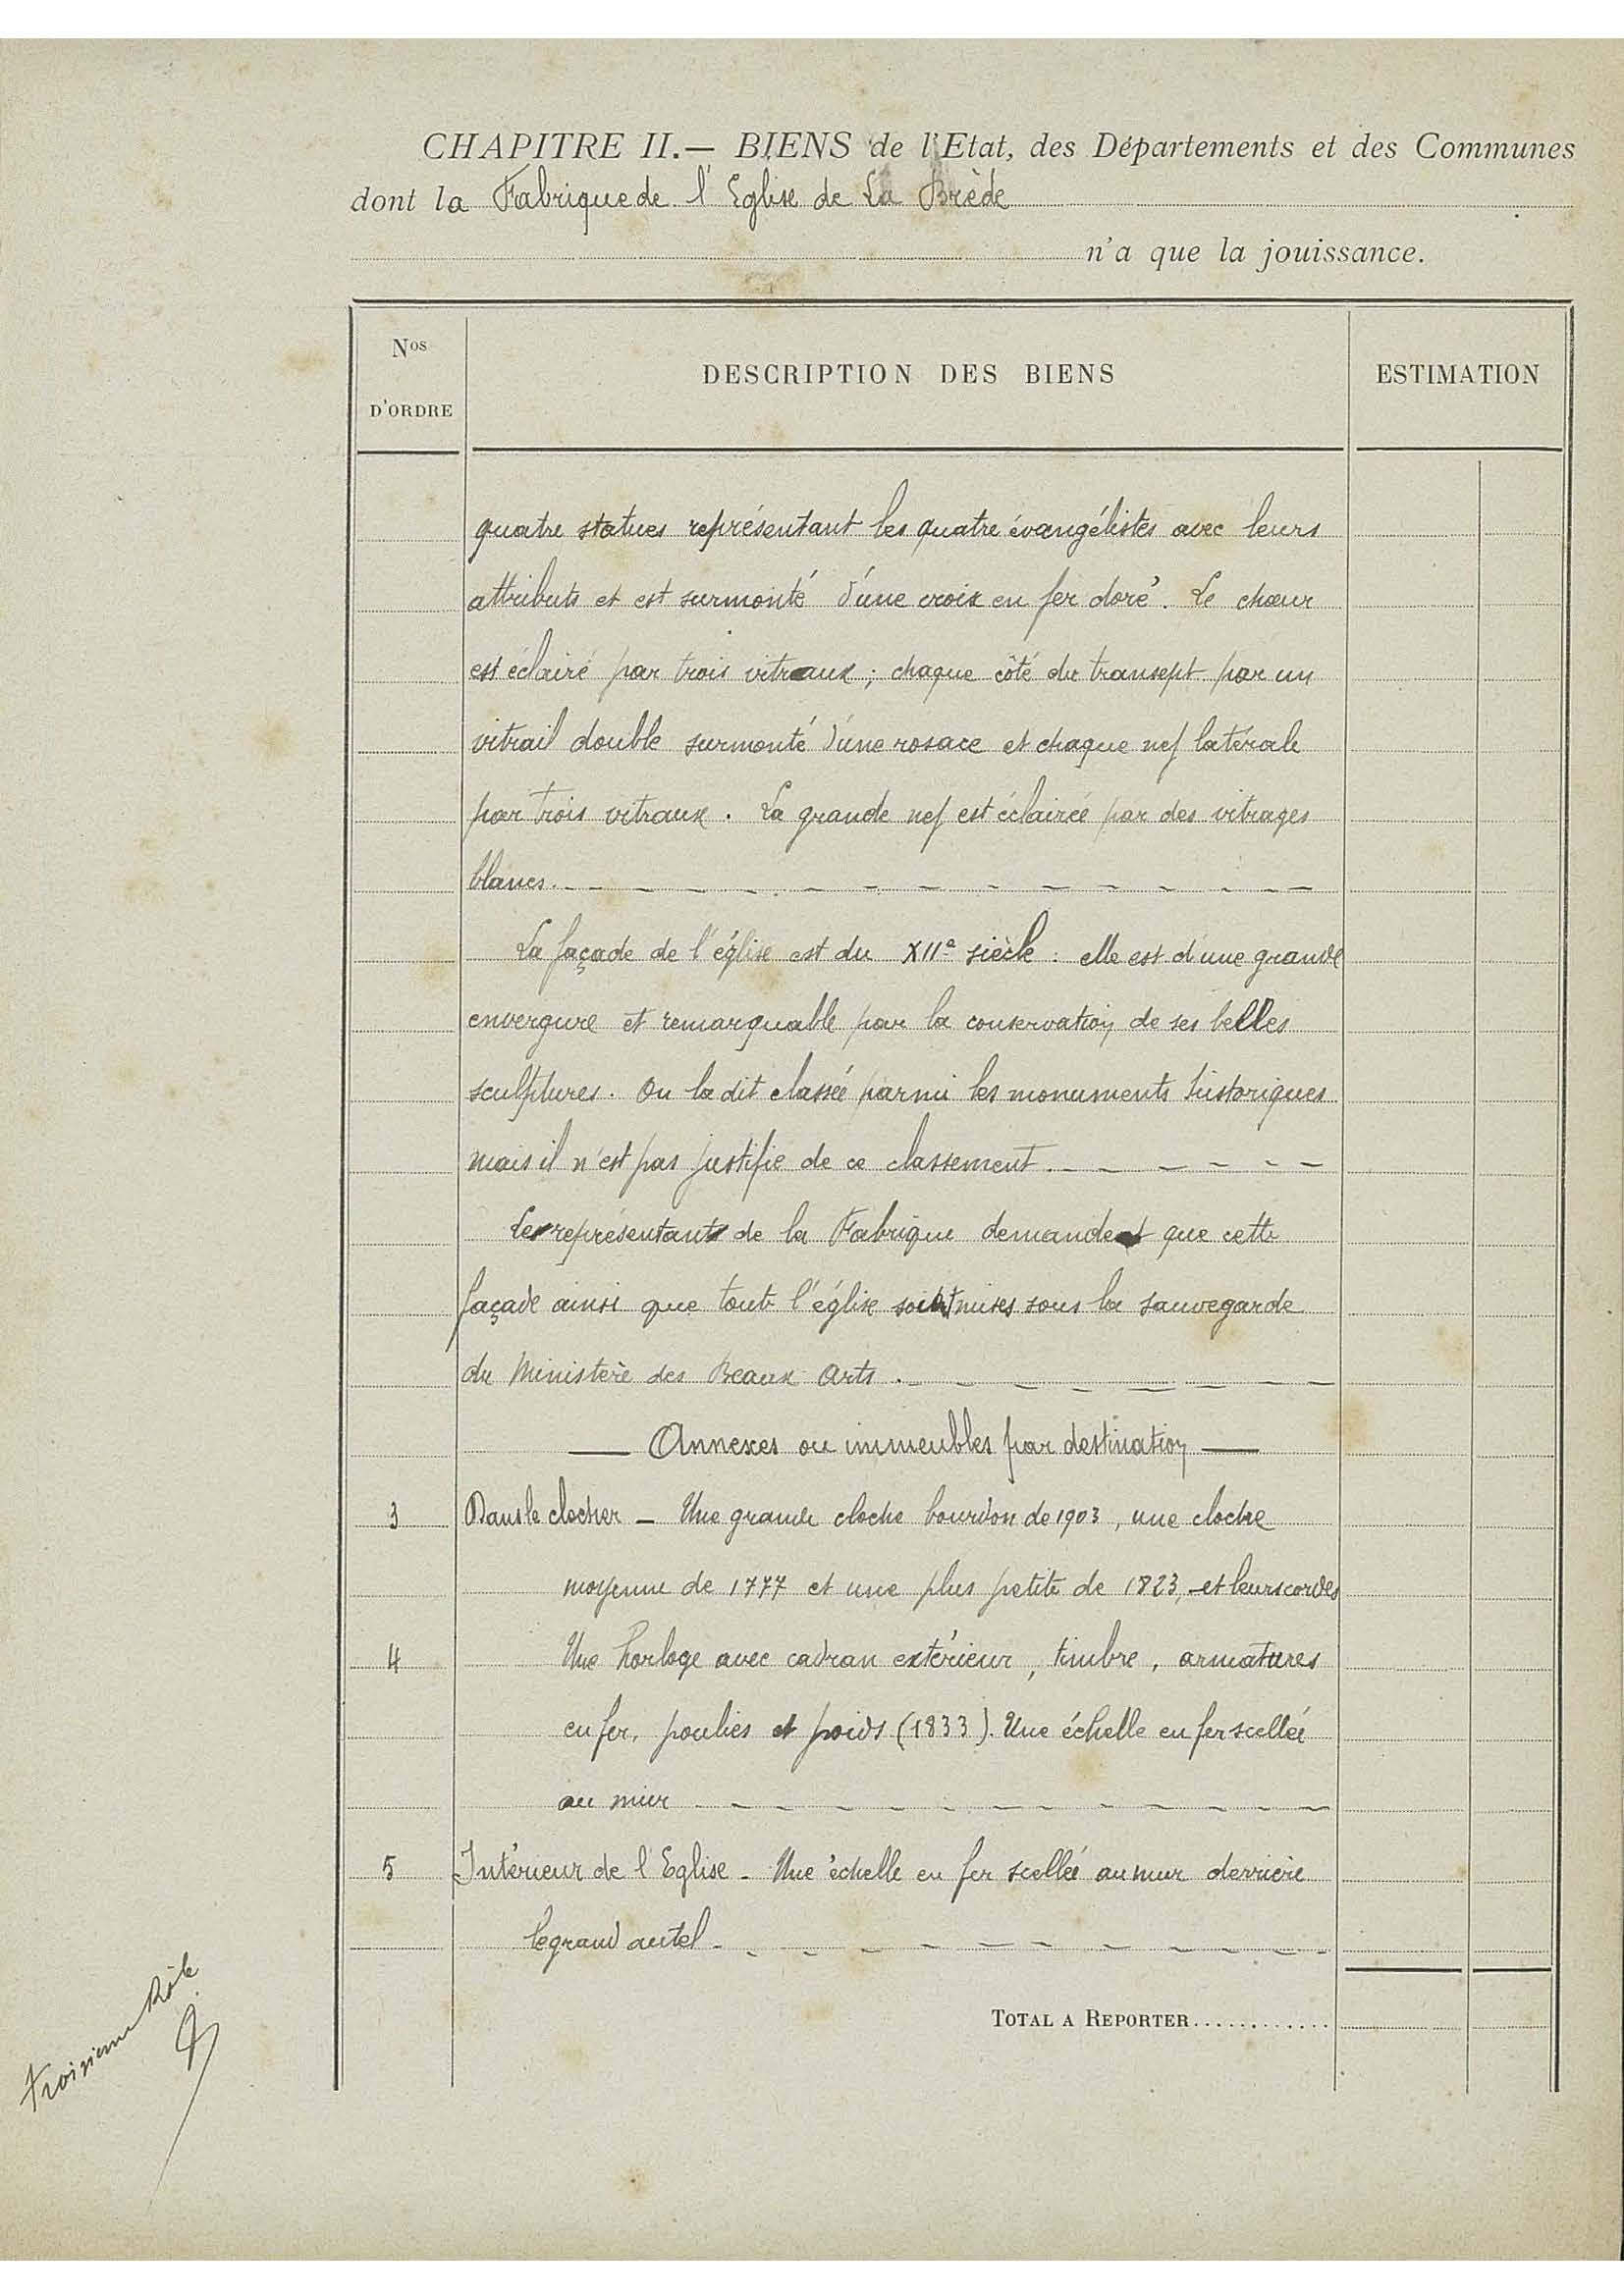 CHAPITRE II.— BIENS de l'Etat, des Départements et des Communes
dont la Fabrique de l'Eglise de La Brède
n'a que la jouissance.
Nos D'ORDRE
DESCRIPTION DES BIENS
ESTIMATION
quatre statues représentant les quatre évangélistes avec leurs
attributs et est surmonté d'une croix en fer doré. Le chœur
est éclairé par trois vitraux ; chaque côté du transept par un
vitrail double surmonté d'une rosace et chaque nef latérale
par trois vitraux. La grande nef est éclairée par des vitrages
blancs.
La façade de l'église est du XIIe siècle : elle est d'une grande
envergure et remarquable par la conservation de ses belles
sculptures. On la dit classée parmi les monuments historiques
mais il n'est pas justifié de ce classement.
Les représentants de la Fabrique demandent que cette
façade ainsi que toute l'église soient mises sous la sauvegarde
du Ministère des Beaux Arts.
— Annexes ou immeubles par destination —
3 Dans le clocher — Une grande cloche bourdon de 1903, une cloche
moyenne de 1777 et une plus petite de 1823, et leurs cordes
4 Une horloge avec cadran extérieur, timbre, armatures
en fer, poulies et poids (1833). Une échelle en fer scellée
au mur
5 Intérieur de l'Eglise - Une échelle en fer scellée au mur derrière
le grand autel
TOTAL A REPORTER............
Troisième Rôle